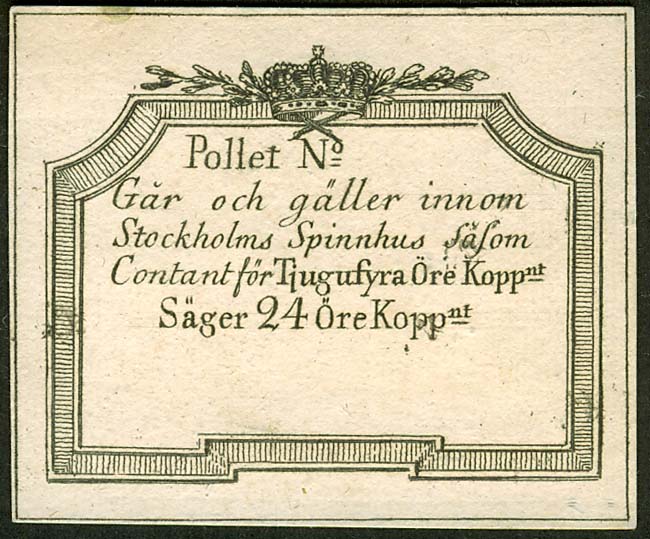 Pollet Nº
Går och gäller innom
Stockholms Spinnhus såſom
Contant för Tjugufyra Öre Koppnt
Säger 24 Öre Koppnt